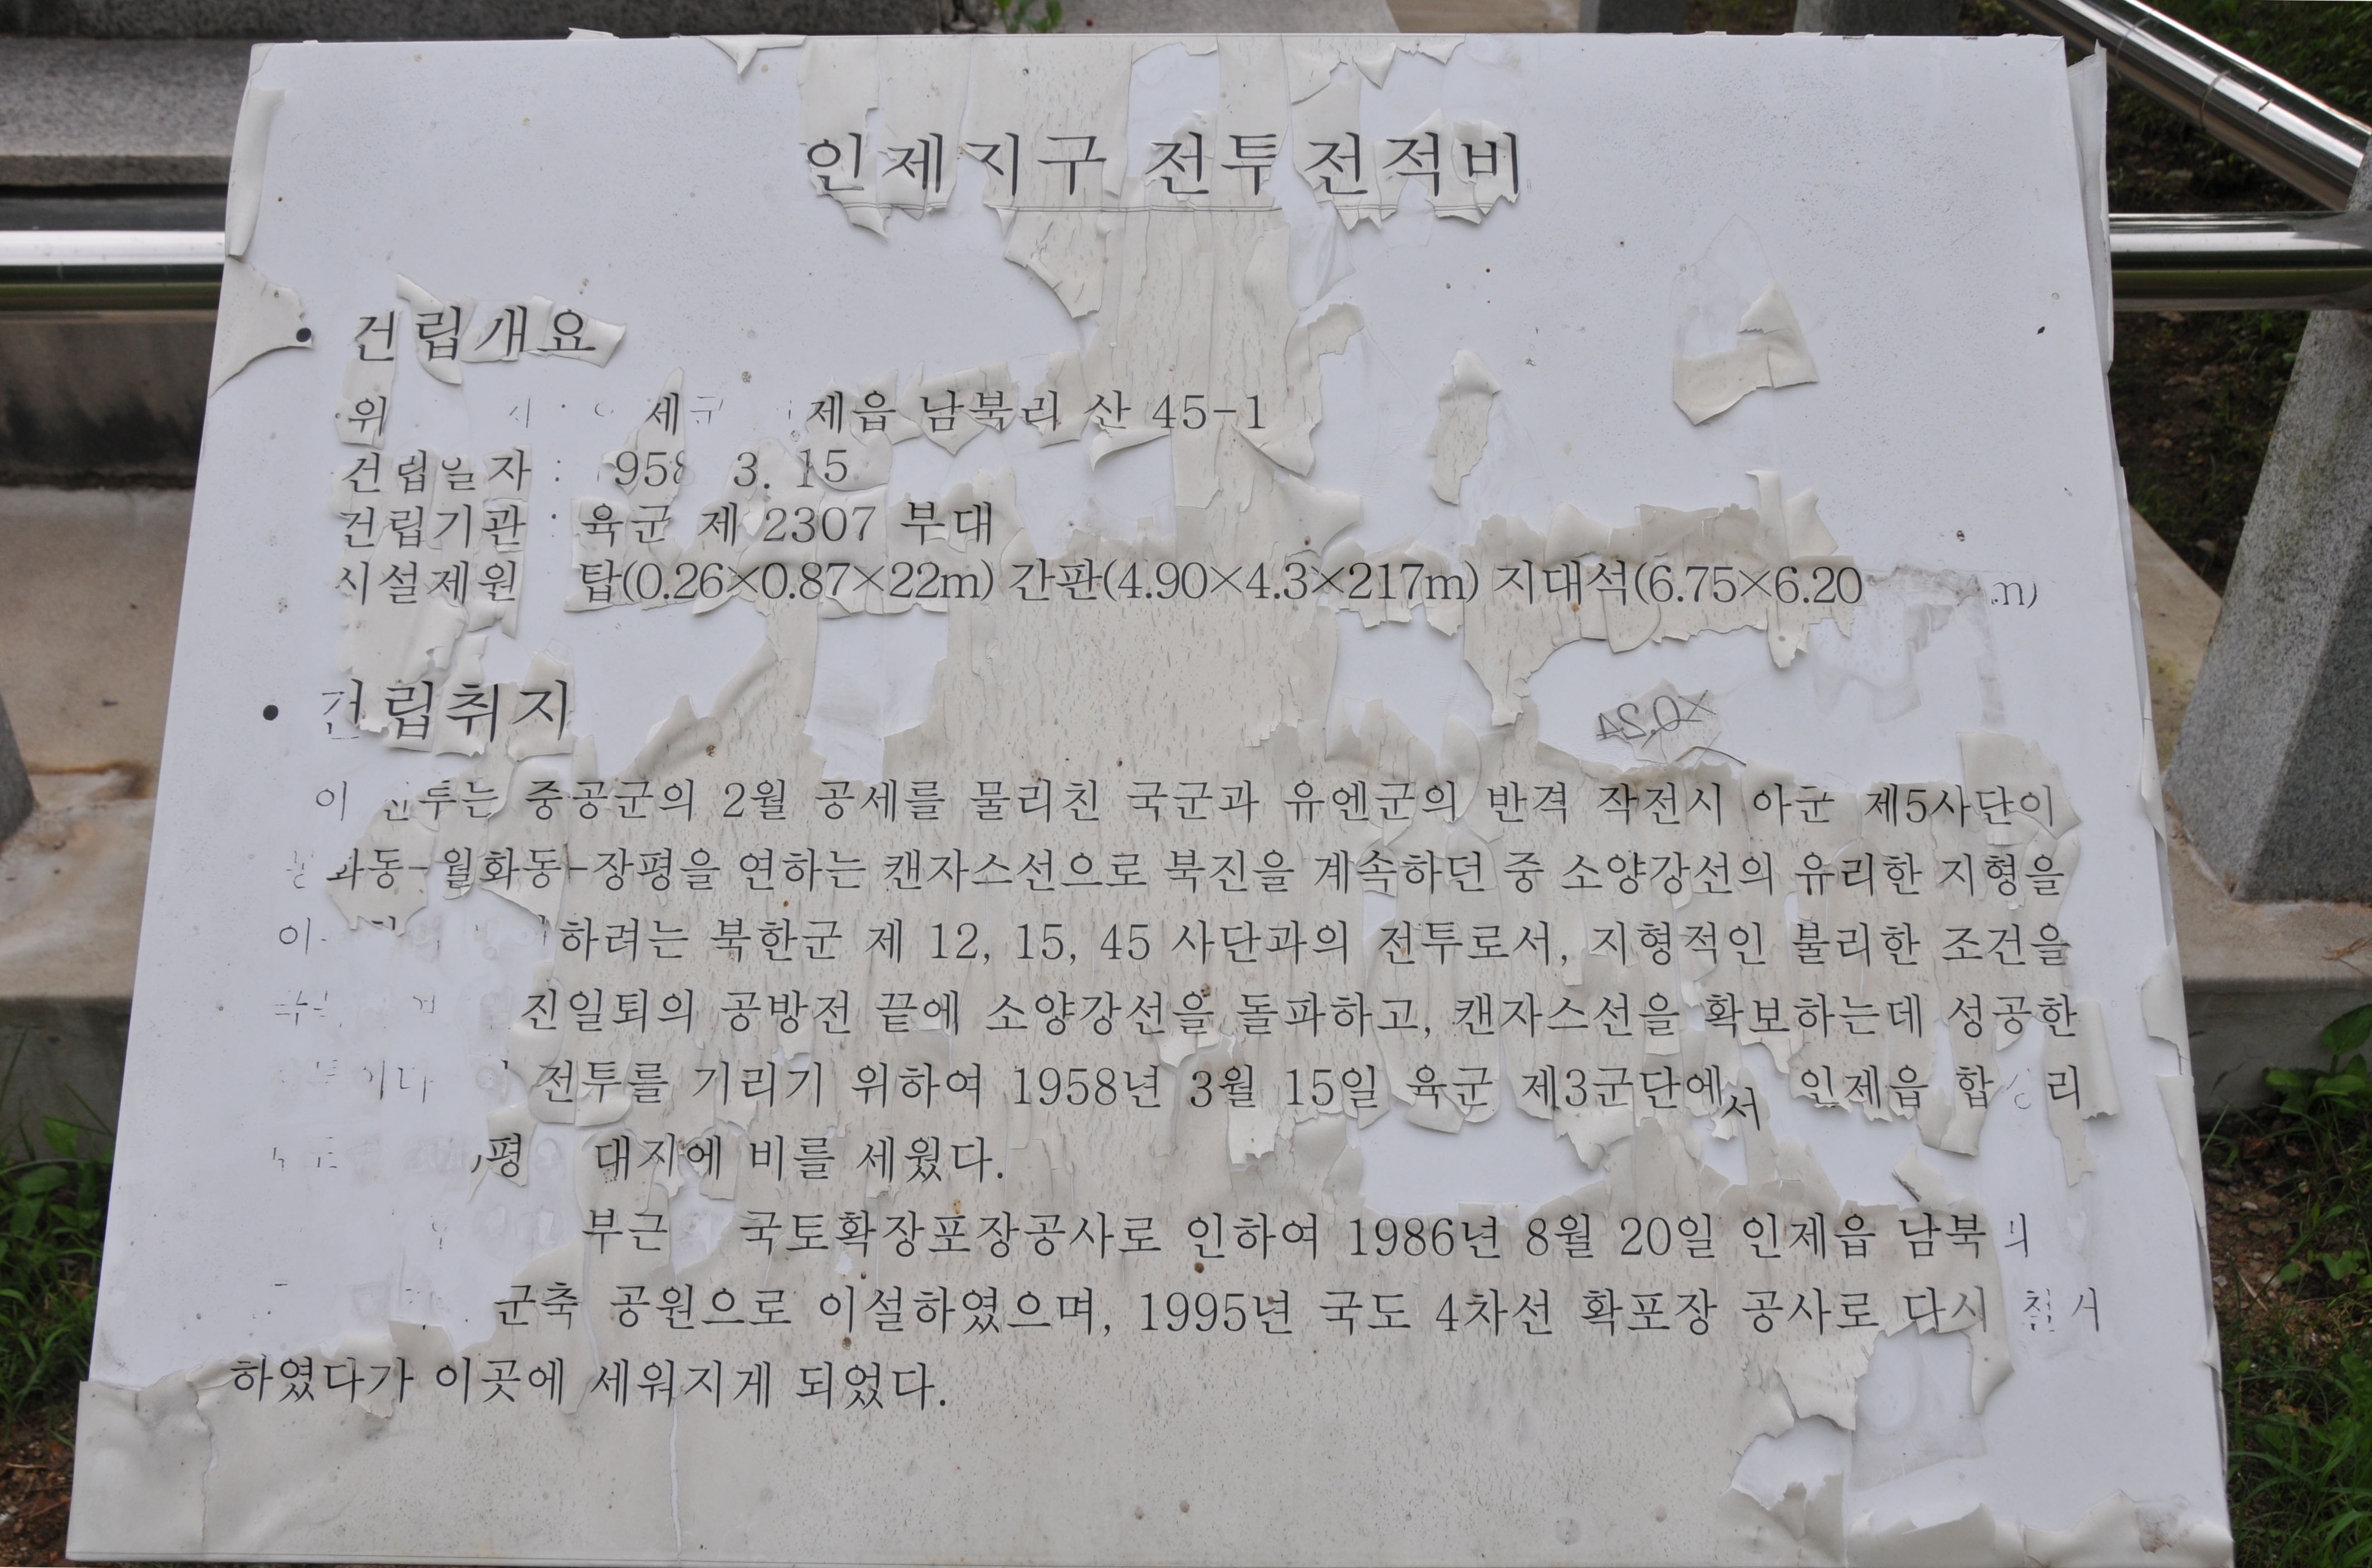 인제지구 전투전적비
• 건립개요
제읍 남북리 산 45-1
건립일자 : 3. 15
건립기관 : 육군 제 2307 부대
시설제원 탑(0.26×0.87×22m) 간판(4.90×4.3×217m) 지대석(6.75×6.20
×0.24
• 건립취지
이 전투는 중공군의 2월 공세를 물리친 국군과 유엔군의 반격 작전시 아군 제5사단이
화동-월화동-장평을 연하는 캔자스선으로 북진을 계속하던 중 소양강선의 유리한 지형을
하려는 북한군 제 12, 15, 45 사단과의 전투로서, 지형적인 불리한 조건을
진일퇴의 공방전 끝에 소양강선을 돌파하고, 캔자스선을 확보하는데 성공한
전투를 기리기 위하여 1958년 3월 15일 육군 제3군단에서 인제읍 합 리
평 대지에 비를 세웠다.
부근 국토확장포장공사로 인하여 1986년 8월 20일 인제읍 남북
군축 공원으로 이설하였으며, 1995년 국도 4차선 확포장 공사로 다시
하였다가 이곳에 세워지게 되었다.